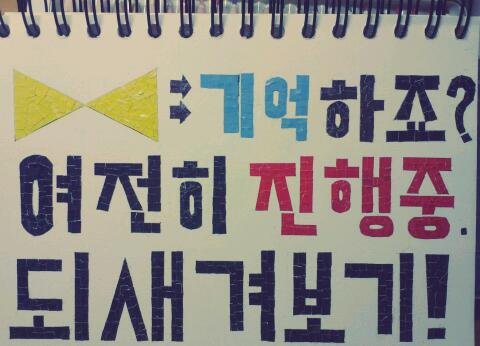 기억하죠?
여전히 진행중.
되새겨보기!